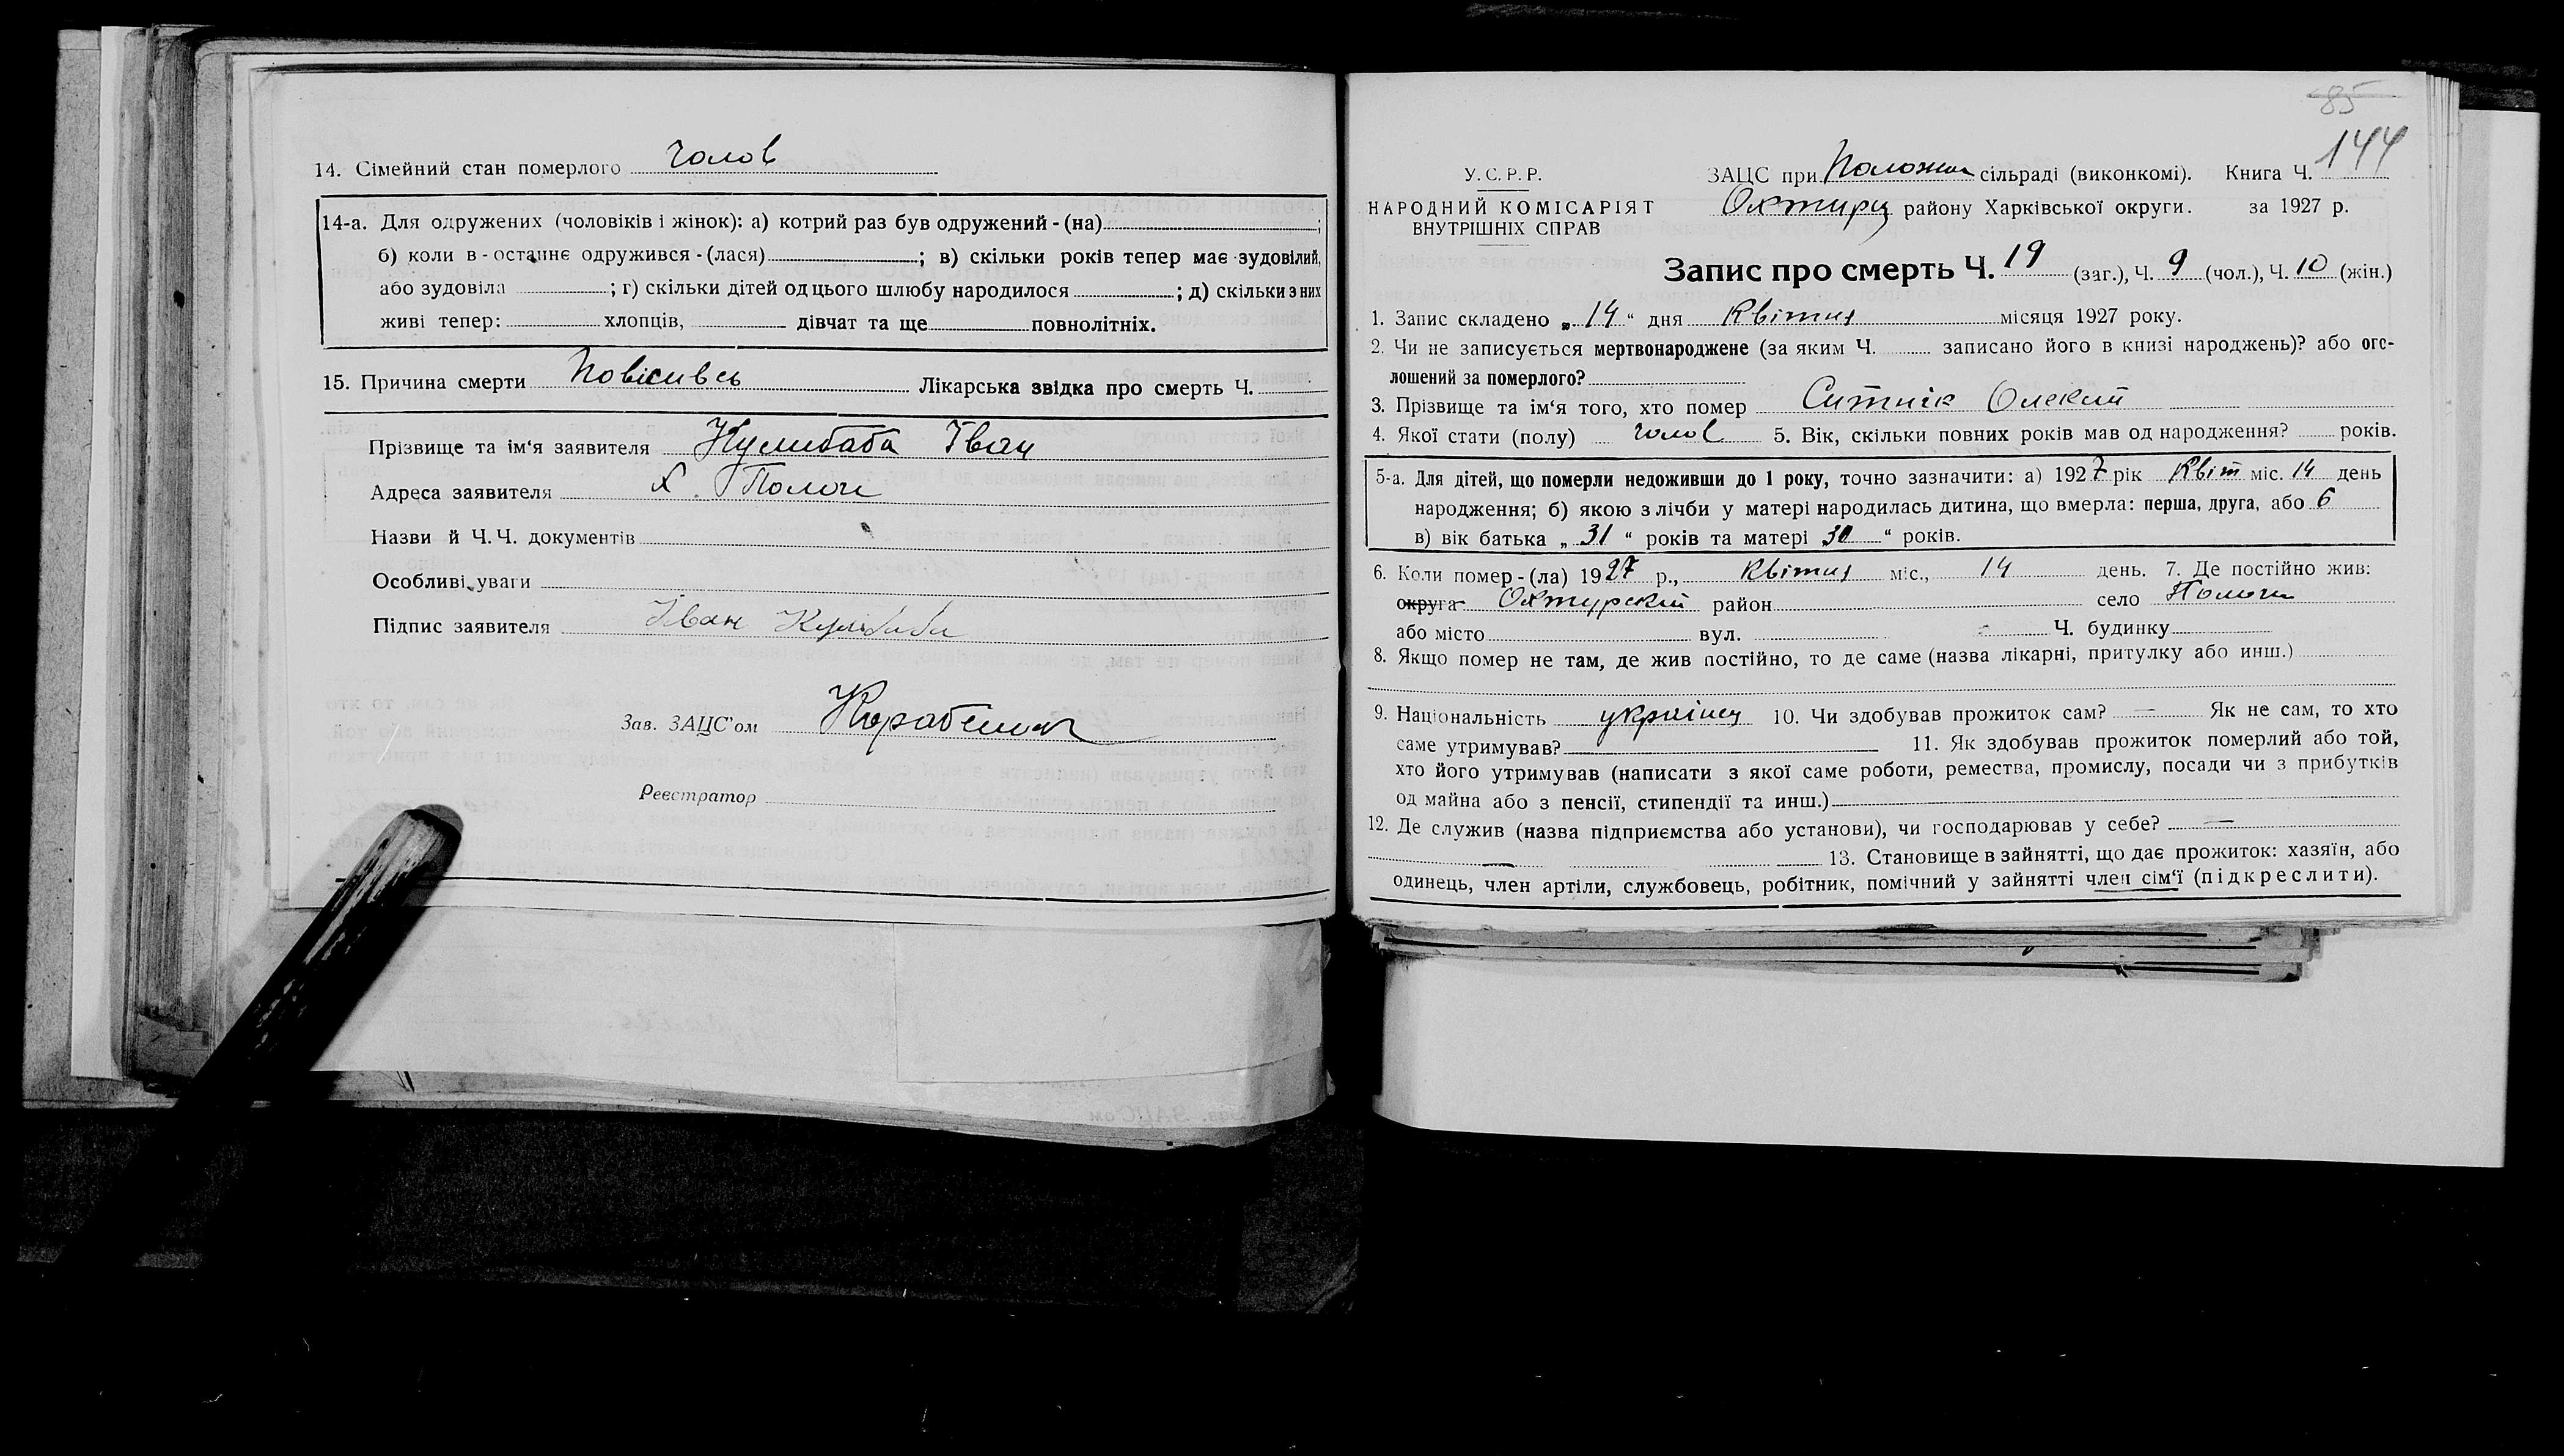 14. Сімейний стан померлого чолов
14-а. Для одружених (чоловіків і жінок): а) котрий раз був одружений - (на) ;
б) коли в - останнє одружився - (лася) ; в) скільки років тепер має зудовілий,
або зудовіла ; г) скільки дітей од цього шлюбу народилося ; д) скільки з них
живі тепер: хлопців, дівчат та ще повнолітніх.
15. Причина смерти Повісивсь Лікарська звідка про смерть Ч.
Прізвище та ім'я заявителя Кулибаба Іван
Адреса заявителя х.
Назви й Ч. Ч. документів
Особливі уваги
Підпис заявителя Іван Кулибаба
Зав. ЗАЦС'ом
Реєстратор
85
144
У. С. Р. Р.
НАРОДНИЙ КОМІСАРІЯТ
ВНУТРІШНІХ СПРАВ
ЗАЦС при сільраді (виконкомі). Книга Ч.
Охтирц району Харківської округи. за 1927 р.
Запис про смерть Ч. 19 (заг.), Ч. 9 (чол.), Ч. 10 (жін.)
1. Запис складено „ 14 “ дня Квітня місяця 1927 року.
2. Чи не записується мертвонароджене (за яким Ч. записано його в книзі народжень)? або ого-
лошений за померлого?
3. Прізвище та ім'я того, хто помер Ситнік Олексій
4. Якої стати (полу) чолов 5. Вік, скільки повних років мав од народження? років.
5-а. Для дітей, що померли недоживши до 1 року, точно зазначити: а) 1927 рік Квіт міс. 14 день
народження; б) якою з лічби у матері народилась дитина, що вмерла: перша, друга, або 6
в) вік батька „ 31 “ років та матері 30 “ років.
6. Коли помер - (ла) 1927 р., Квітня міс., 14 день. 7. Де постійно жив:
округа Охтурский район село
або місто вул. Ч. будинку
8. Якщо помер не там, де жив постійно, то де саме (назва лікарні, притулку або инш.)
9. Національність українц 10. Чи здобував прожиток сам? — Як не сам, то хто
саме утримував? 11. Як здобував прожиток померлий або той,
хто його утримував (написати з якої саме роботи, ремества, промислу, посади чи з прибутків
од майна або з пенсії, стипендії та инш.)
12. Де служив (назва підприємства або установи), чи господарював у себе? —
— 13. Становище в зайнятті, що дає прожиток: хазяїн, або
одинець, член артіли, службовець, робітник, помічний у зайнятті член сім'ї (підкреслити).